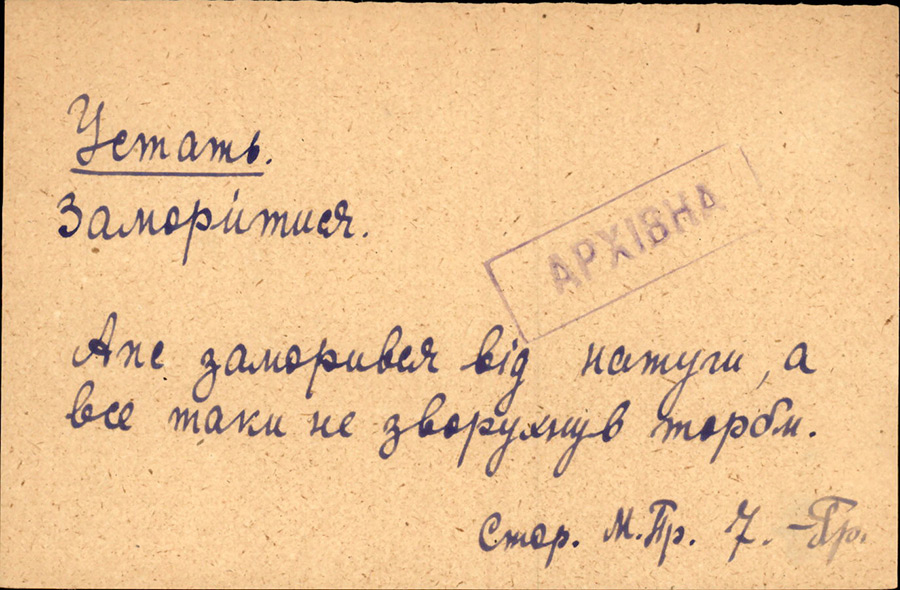 Устать.
Замори́тися.
АРХІВНА
Аже заморився від натуги, а
все таки не зворухнув торби.
Стор. М.Пр. 7. – Гр.